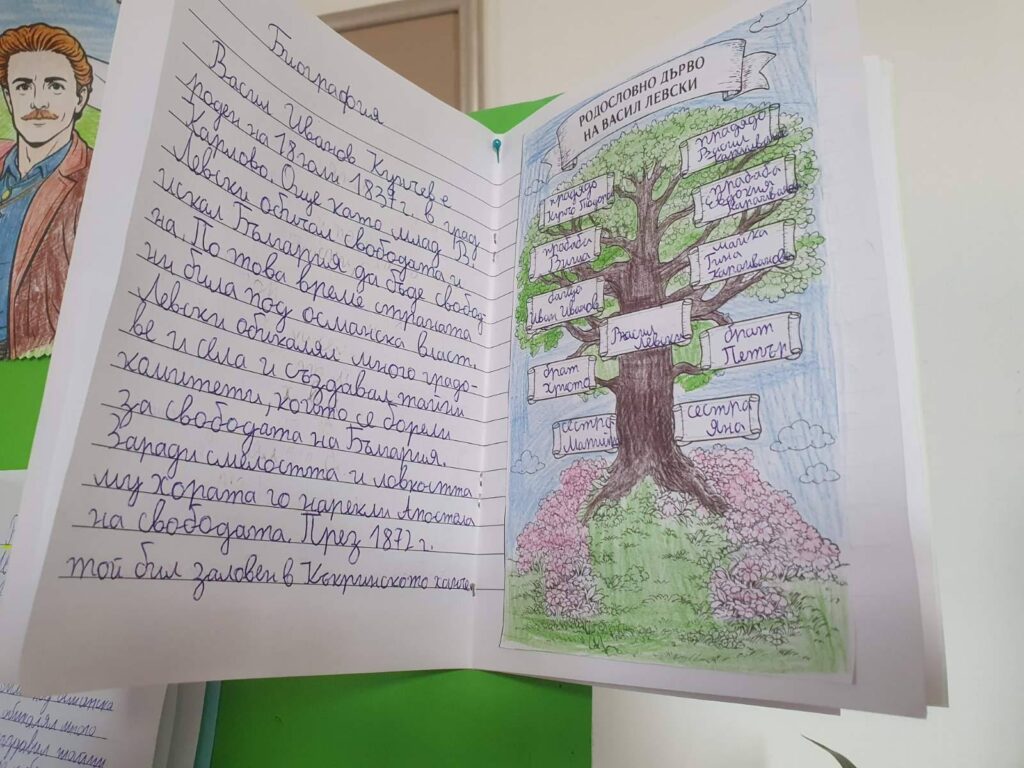 Биография
Васил Иванов Кунчев е
роден на 18 юли 1837г. в град
Карлово. Още като млад
Левски обичал свободата и
искал България да бъде свобод-
на. По това време страната
ни била под османска власт.
Левски обикалял много градо-
ве и села и създавал тайни
комитети, които се борели
за свободата на България.
Заради смелостта и ловкостта
му хората го нарекли Апостола
на свободата. През 1872 г.
той бил заловен в Къкринското ханче
РОДОСЛОВНО ДЪРВО
НА ВАСИЛ ЛЕВСКИ
прадядо
Васил
Караиванов
прадядо
Кунчо
прабаба
Евдокия
Караиванова
прабаба
майка
Гина
Караиванова
баща
Иван Иванов
Васил
Левски
брат
Петър
брат
Христо
сестра
Яна
сестра
османска
обикалял много